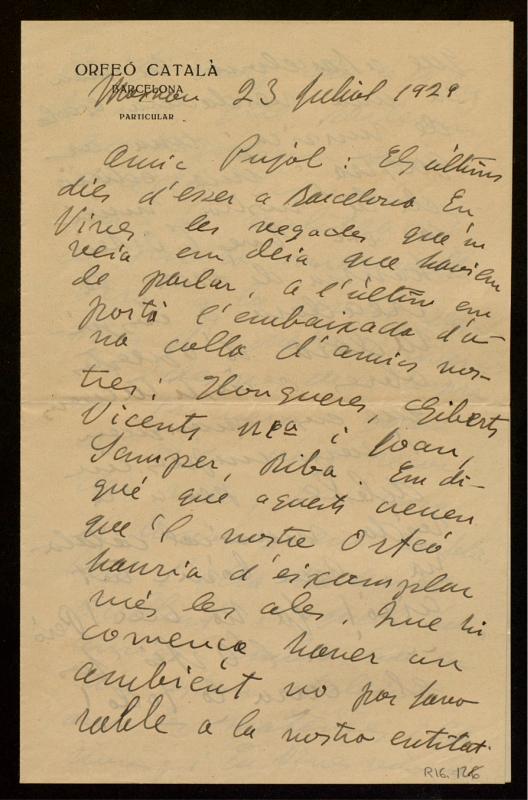 ORFEÓ CATALÀ
BARCELONA
PARTICULAR
23 Juliol 1929
Amic Pujol: Els últims
dies d'esser a Barcelona En
Vives les vegades que'm
veia em deia que haviem
de parlar, a l'últim em
portà l'embaixada d'u-
na colla d'amics nos-
tres: Llongueres, Giberts
Vicents Mª i Joan,
Samper, Riba. Em di-
gué que aquests creuen
que'l nostre Orfeó
hauria d'eixamplar
més les ales. Que hi
comença haver un
ambient no por favo
rable a la nostra entitat.
R16. 126